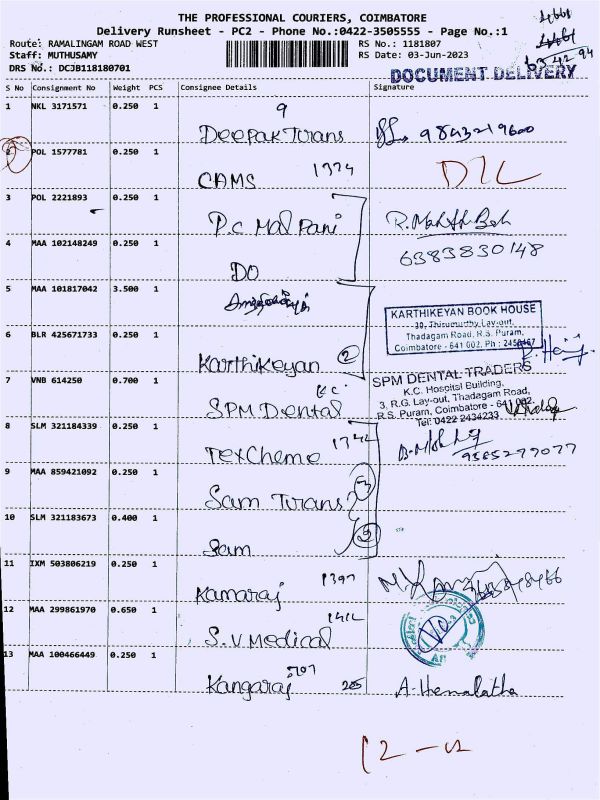 THE PROFESSIONAL COURIERS, COIMBATORE
Delivery Runsheet - PC2 - Phone No.:0422-3505555 - Page No.:1
Route: RAMALINGAM ROAD WEST RS No.: 1181807
Staff: MUTHUSAMY RS Date: 03-Jun-2023
DRS No.: DCJB118180701
DOCUMENT DELIVERY
S No Consignment No Weight PCS Consignee Details Signature
1 NKL 3171571 0.250 1 9
Deepak Trans 9843219600
2 POL 1577781 0.250 1
CAMS 1374 D2L
3 POL 2221893 0.250 1
P.C Mal Pani
4 MAA 102148249 0.250 1 6383830148
DO
5 MAA 101817042 3.500 1
KARTHIKEYAN BOOK HOUSE
30, Thirumurthy Lay-out,
Thadagam Road, R.S. Puram,
Coimbatore - 641 002. Ph :
6 BLR 425671733 0.250 1
Karthikeyan 2
7 VNB 614250 0.700 1 K.C.
SPM Dental
SPM DENTAL TRADERS
K.C. Hospital Building,
3, R.G. Lay-out, Thadagam Road,
R.S. Puram, Coimbatore - 641 002.
Tel: 0422 2434233
8 SLM 321184339 0.250 1 1742
TexChemo 9585277077
9 MAA 859421092 0.250 1
Sam Trans
10 SLM 321183673 0.400 1
Sam
11 IXM 503806219 0.250 1 1397
Kamaraj
12 MAA 299861970 0.650 1 1412
S.V Medical
13 MAA 100466449 0.250 1
Kangaraj 205 A. Hemalatha